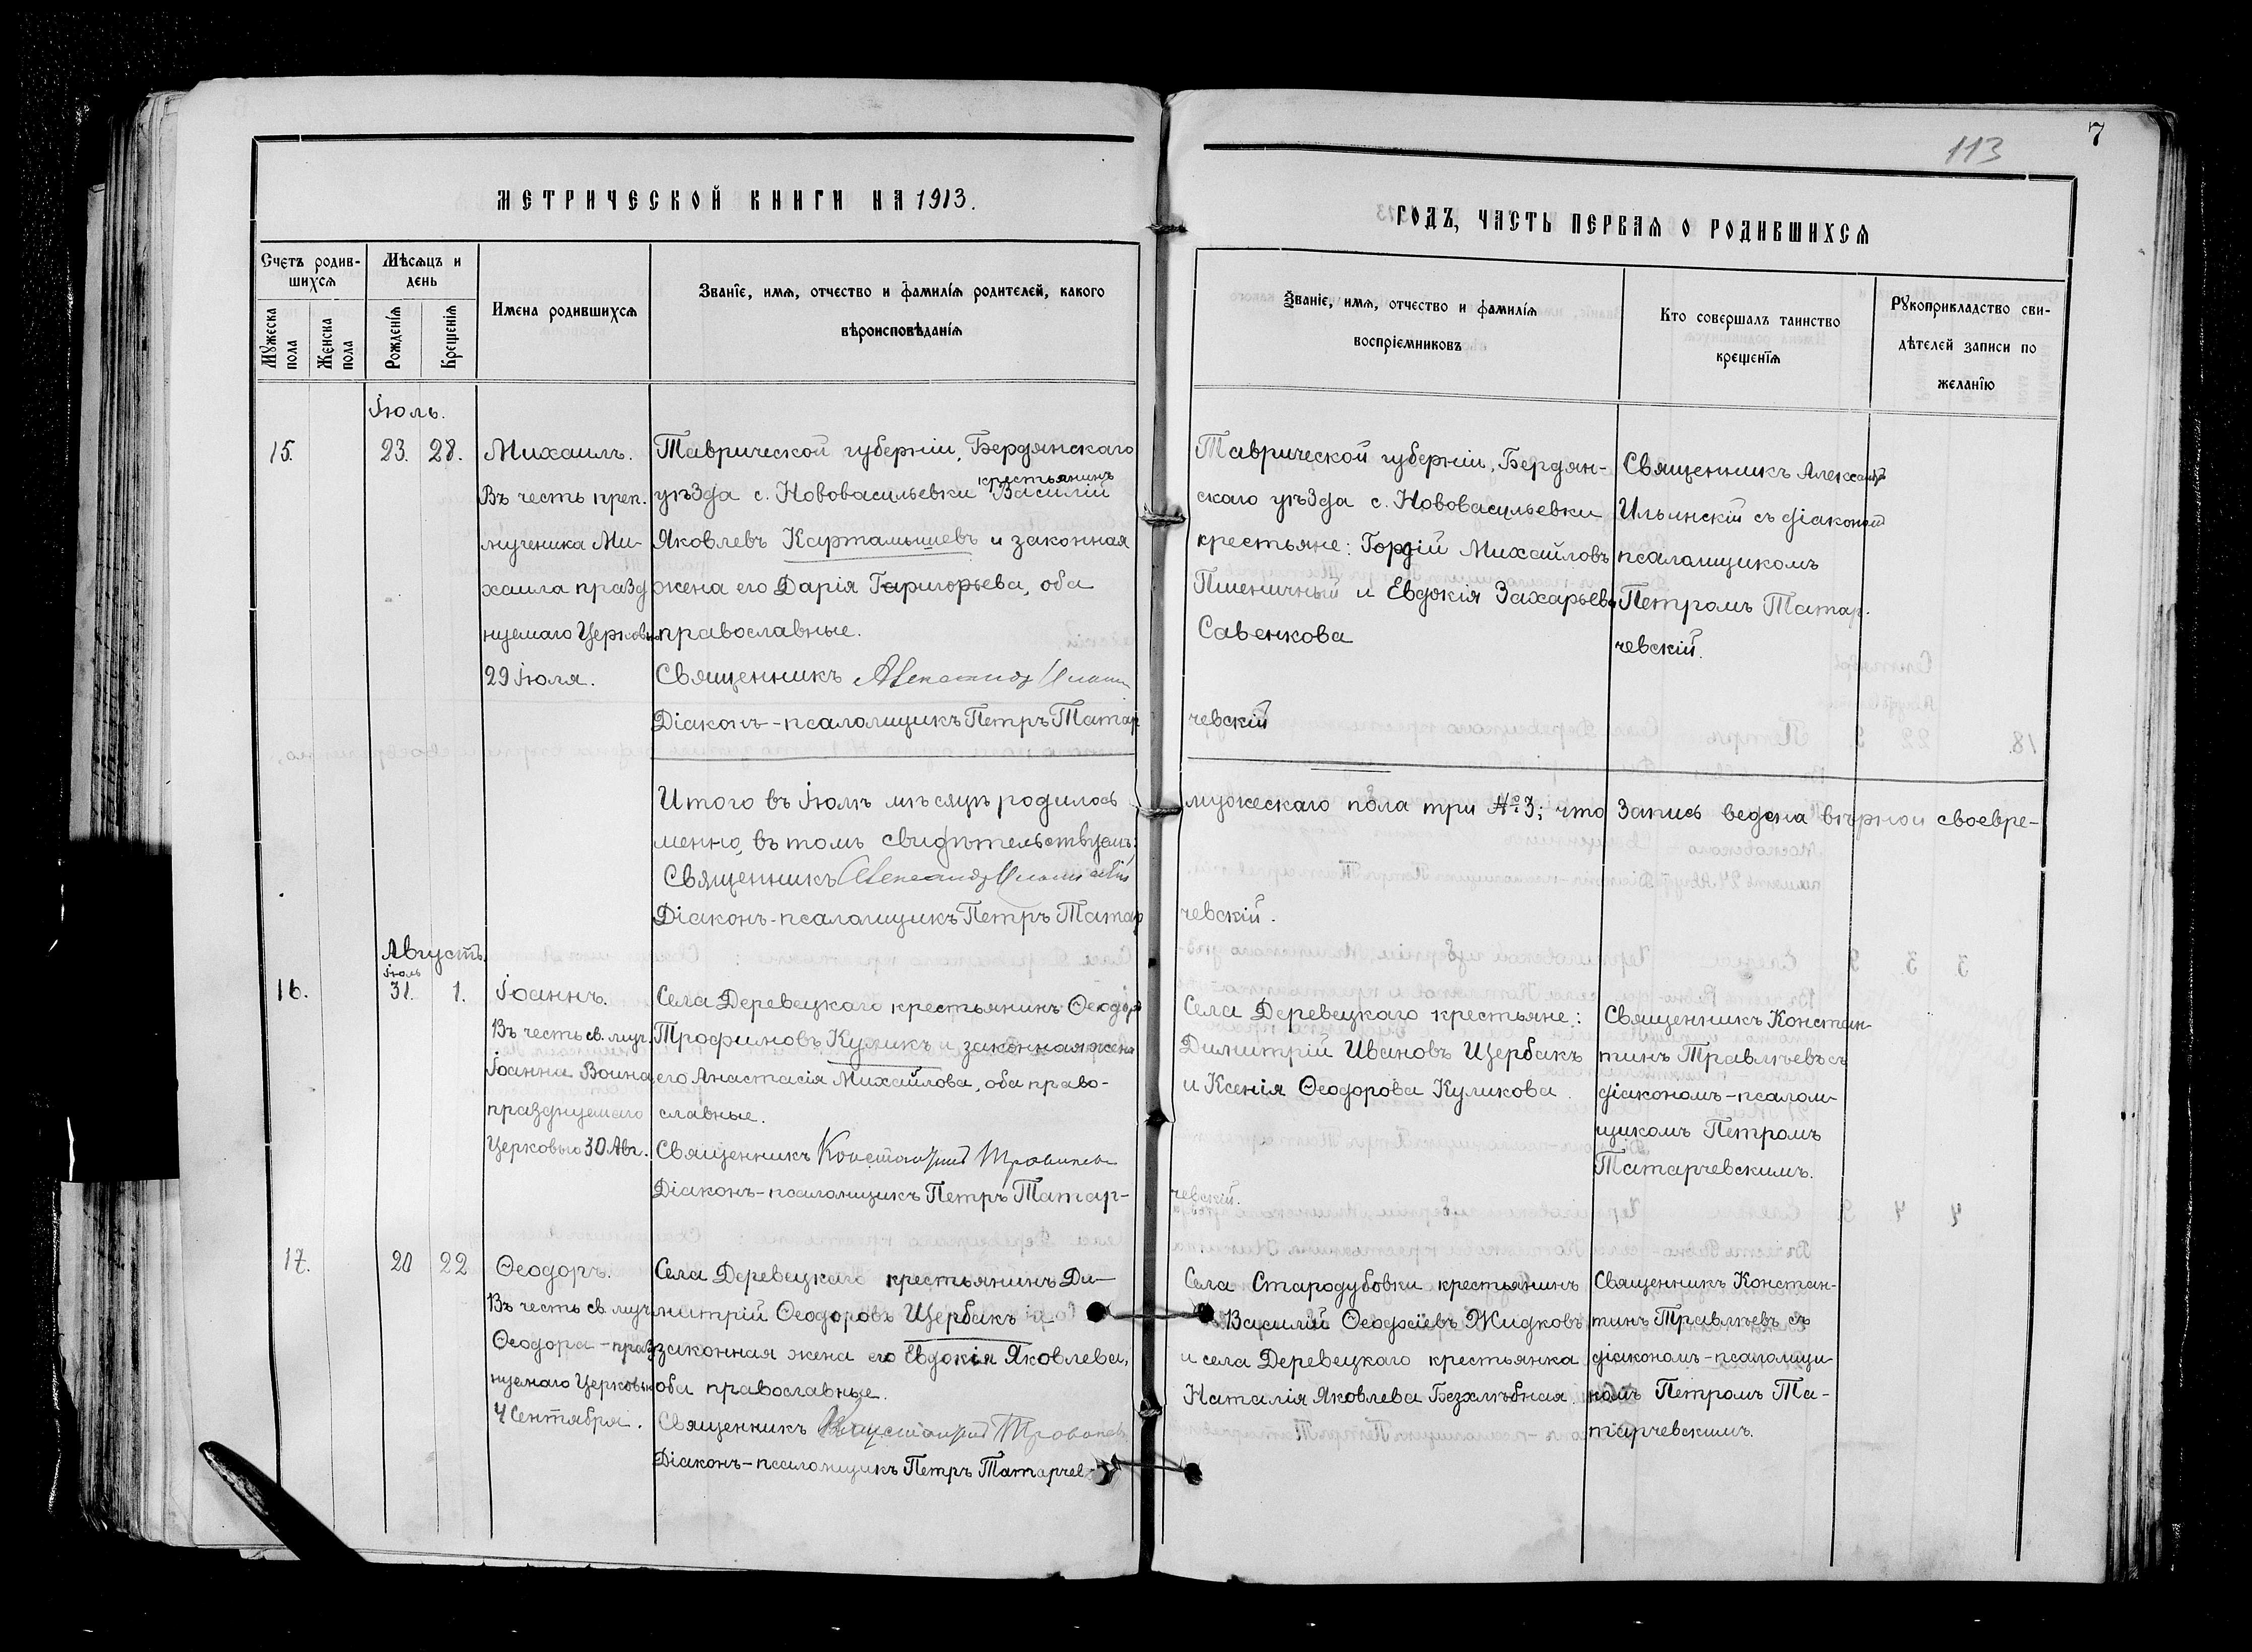 7
113
МЕТРИЧЕСКОЙ КНИГИ НА 1913.
ГОДЪ, ЧАСТЬ ПЕРВАЯ О РОДИВШИХСЯ
Счетъ родив-
шихся
Мужеска пола
Женска пола
Мѣсяцъ и
день
Рожденія
Крещенія
Имена родившихся
Званіе, имя, отчество и фамилія родителей, какого
вѣроисповѣданія
Званіе, имя, отчество и фамилія
воспріемниковъ
Кто совершалъ таинство
крещенія
Рукоприкладство сви-
дѣтелей записи по
желанію
Іюль.
15.
23. 28.
Михаилъ.
Въ честь преп.
мученика Ми-
хаила празд
нуемаго Церковью
29 Іюля.
Таврической губерніи, Бердянскаго
крестьянинъ
уѣзда с. Нововасильевки Василій
Яковлевъ Картамышевъ и законная
жена его Дарія Григорьева, оба
православные.
Священникъ Александр
Діаконъ-псаломщикъ Петръ Татар
чевскій
Таврической губерніи, Бердян-
скаго уѣзда с. Нововасильевки
крестьяне: Гордій Михайловъ
Пшеничный и Евдокія Захарьева
Савенкова
Священникъ Александръ
Ильинскій съ діакономъ
псаломщикомъ
Петромъ Татар.
чевскій.
Итого въ Іюлѣ мѣсяцѣ родилось мужескаго пола три № 3; что запись ведена вѣрно и своевре-
менно, въ томъ свидѣтельствуемъ:
Священникъ Александр
Діаконъ-псаломщикъ Петръ Татар
чевскій.
Августъ.
16.
Іюль
31. 1.
Іоаннъ.
Въ честь св. муч.
Іоанна Воина
празднуемаго
Церковью 30 Авг.
Села Деревецкаго крестьянинъ Ѳеодоръ
Трофимовъ Куликъ и законная жена
его Анастасія Михайлова, оба право-
славные.
Священникъ Константин Травлѣев
Діаконъ-псаломщикъ Петръ Татар-
чевскій.
Села Деревецкаго крестьяне:
Димитрій Ивановъ Щербакъ
и Ксенія Ѳеодорова Куликова.
Священникъ Констан-
тинъ Травлѣевъ съ
діакономъ-псалом-
щикомъ Петромъ
Татарчевскимъ.
17.
20 22
Ѳеодоръ.
Въ честь св. муч.
Ѳеодора - праз
нуемаго Церковью
4 Сентября.
Села Деревецкаго крестьянинъ Ди-
митрій Ѳеодоровъ Щербакъ и
законная жена его Евдокія Яковлева,
оба православные.
Священникъ Константин Травлѣев
Діаконъ-псаломщикъ Петръ Татарчев
Села Стародубовки крестьянинъ
Василій Ѳеодосіевъ Жидковъ
и села Деревецкаго крестьянка
Наталія Яковлева Безхлѣбная.
Священникъ Констан-
тинъ Травлѣевъ съ
діакономъ-псаломщи-
комъ Петромъ Та-
тарчевскимъ.